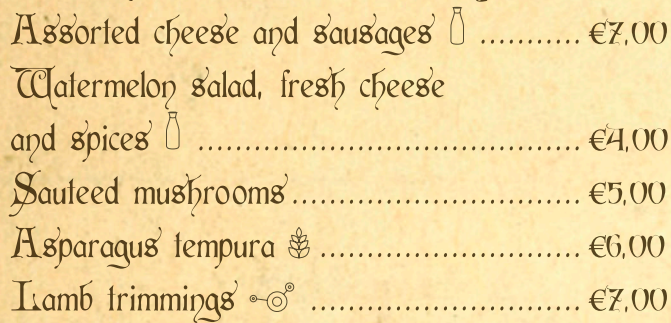 Assorted cheese and sausages .......... €7,00
Watermelon salad, fresh cheese
and spices ....................................... €4,00
Sauteed mushrooms ............................. €5,00
Asparagus tempura .......................... €6,00
Lamb trimmings ........................... €7,00